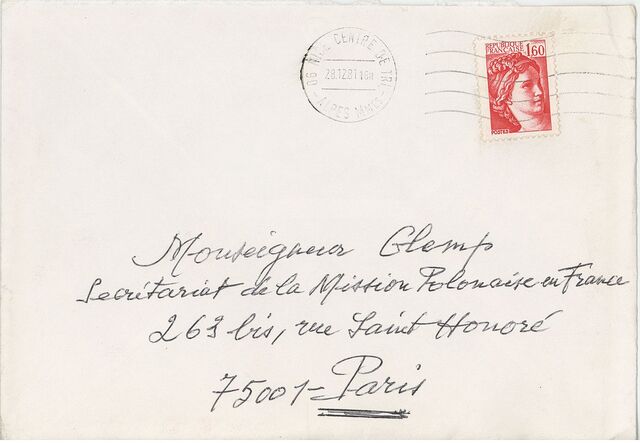 06 NICE CENTRE DE TRI
28.12.81 16H
ALPES MMES
REPUBLIQUE
FRANÇAISE
1,60
POSTES
Monseigneur Glemp
Secrétariat de la Mission Polonaise en France
263 bis, rue Saint Honoré
75001 - Paris